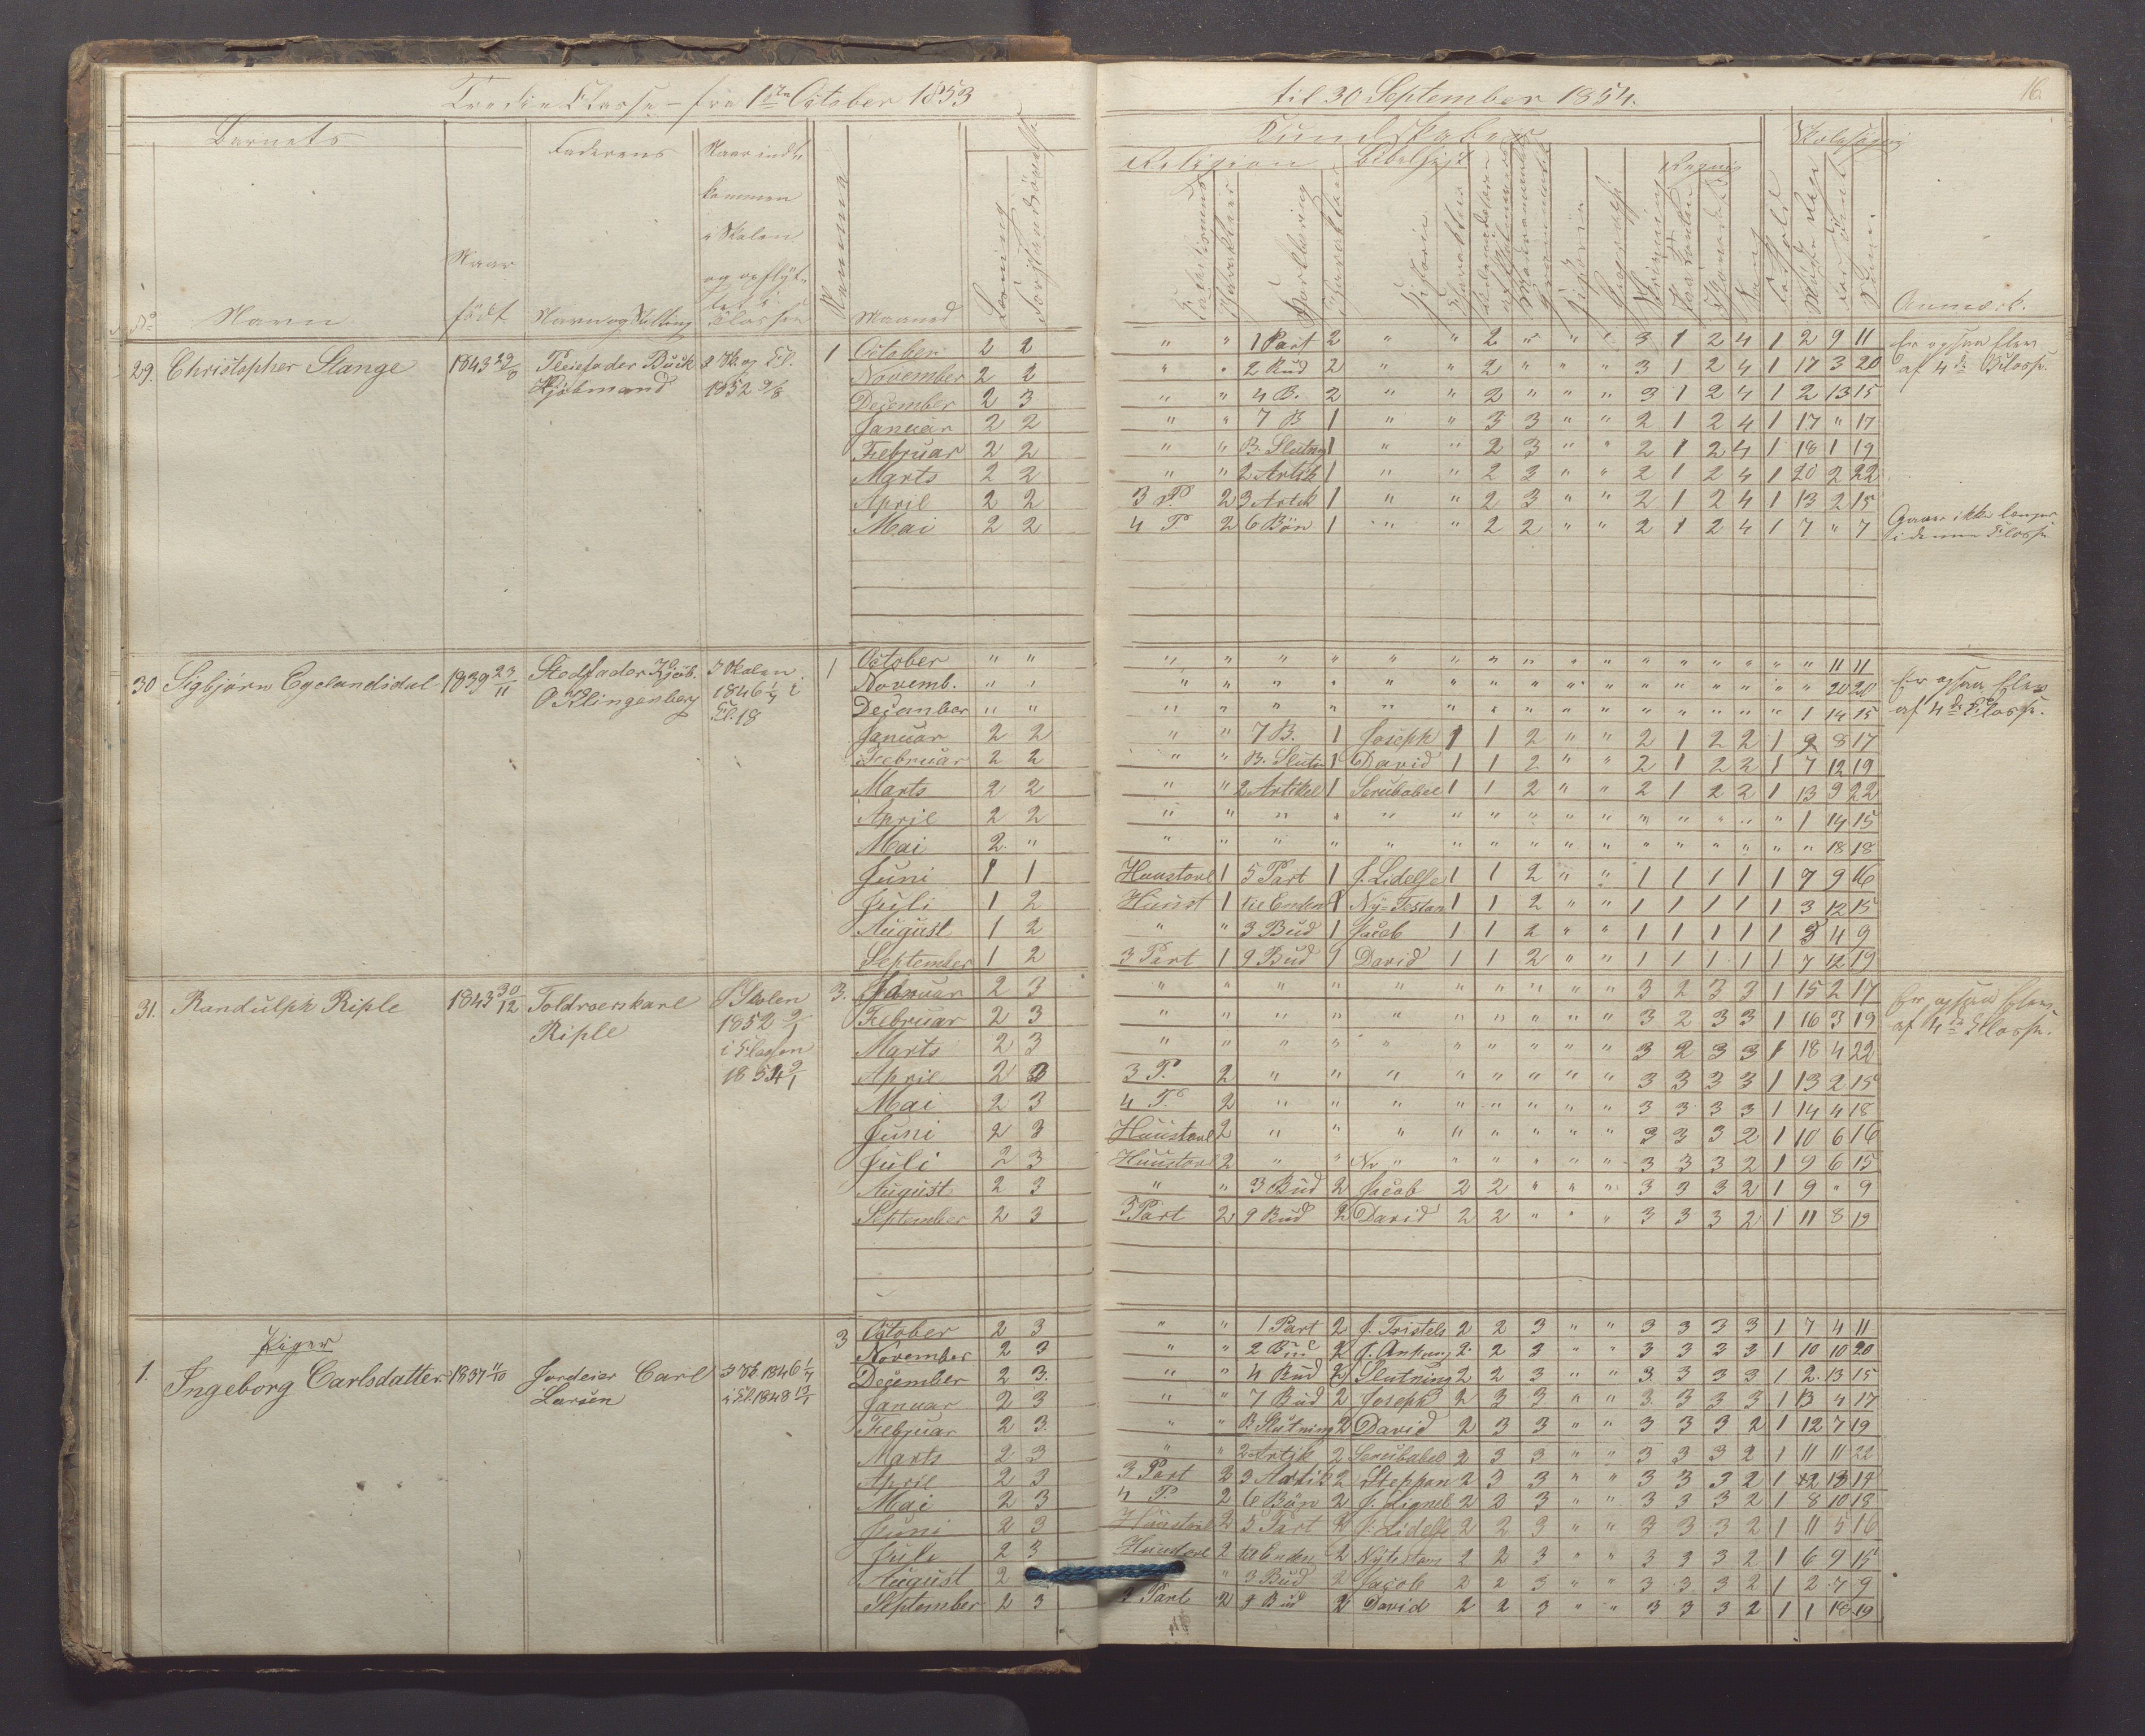 Tredie Classe – fra 1ste October 1853 til 30 September 1854. 16
Barnets Faderens Naar indkommen i Skolen og opflyttet i Classen Nummer Maaned Læsning Forstandsøvelse
No Navn Naar født Navn og Stilling
Kundskaber Skolesøgning
Religion Bibelhist. Regning
Anmærk.
29. Christopher Stange 1843 Pleiefader Buck Kjøbmand 1852 1
October 2 2 " " 1 Part 2 " " 2 " " " 3 1 2 4 1 2 9 11 Er ogsaa Elev
November 2 2 " " 2 Bud 2 " " 2 " " " 3 1 2 4 1 17 3 20 af 4de Classe.
December 2 3 " " 4 B. 2 " " 2 " " " 3 1 2 4 1 2 13 15
Januar 2 2 " " 7 B 1 " " 3 3 " " 2 1 2 4 1 17 " 17
Februar 2 2 " " B. Slutng 1 " " 2 3 " " 2 1 2 4 1 18 1 19
Marts 2 2 " " 2 Artik 1 " " 2 3 " " 2 1 2 4 1 20 2 22
April 2 2 3 P. 2 3 Artik 1 " " 2 3 " " 2 1 2 4 1 13 2 15
Mai 2 2 4 P. 2 6 Bön 1 " " 2 2 " " 2 1 2 4 1 7 " 7 Gaar ikke længer
i denne Classe
30 Sigbjørn Egelandsdal 1839 23/11 Stedfader Kjøb. O Klingenberg I Skolen 1846 i Cl. 18 1
October " " " " " " " " " " " " " " " " " " 11 11 Er ogsaa Elev
Novemb. " " " " " " " " " " " " " " " " " " 20 20 af 4de Classe.
December " " " " " " " " " " " " " " " " " 1 14 15
Januar 2 2 " " 7 B. 1 Joseph 1 1 2 " " 2 1 2 2 1 9 8 17
Februar 2 2 " " B. Slutn 1 David 1 1 2 " " 2 1 2 2 1 7 12 19
Marts 2 2 " " 2 Artikel 1 Serubabel 1 1 2 " " 2 1 2 2 1 13 9 22
April 2 2 " " " " " " " " " " " " " " " 1 14 15
Mai 2 " " " " " " " " " " " " " " " " " 18 18
Juni 1 1 Huustavl 1 5 Part 1 J. Lidelse 1 1 2 " " 1 1 1 1 1 7 9 16
Juli 1 2 Huust 1 til Enden 1 Ny-Testam 1 1 2 " " 1 1 1 1 1 3 12 15
August 1 2 " " 3 Bud 1 Jacob 1 1 2 " " 1 1 1 1 1 5 4 9
September 1 2 3 Part 1 9 Bud 1 David 1 1 2 " " 1 1 1 1 1 7 12 19
31. Randulph Riple 1843 30/12 Toldroerskarl Riple I Skolen 1852 i Classen 1854 3.
Januar 2 3 " " " " " " " " " " 3 2 3 3 1 15 2 17 Er ogsaa Elev
Februar 2 3 " " " " " " " " " " 3 2 3 3 1 16 3 19 af 4de Classe.
Marts 2 3 " " " " " " " " " " 3 2 3 3 1 18 4 22
April 2 3 3 P. 2 " " " " " " " " 3 3 3 3 1 13 2 15
Mai 2 3 4 P. 2 " " " " " " " " 3 3 3 3 1 14 4 18
Juni 2 3 Huustavl 2 " " " " " " " " 3 3 3 2 1 10 6 16
Juli 2 3 Huustavl 2 " " " " " " " 3 3 3 2 1 9 6 15
August 2 3 " " 3 Bud 2 Jacob 2 2 " " " 3 3 3 2 1 9 " 9
September 2 3 3 Part 2 9 Bud 2 David 2 2 " " " 3 3 3 2 1 11 8 19
Piger
1. Ingeborg Carlsdatter 1837 11/10 Jordeier Carl Larsen I Sk. 1846 i Cl. 1848 3
October 2 3 " " 1 Part 2 J. Fristels 2 2 3 " " 3 3 3 3 1 7 4 11
November 2 3 " " 2 Bud 2 2 2 3 " " 3 3 3 3 1 10 10 20
December 2 3 " " 4 Bud 2 Slutning 2 2 3 " " 3 3 3 3 1 2 13 15
Januar 2 3 " " 7 Bud 2 Joseph 2 3 3 " " 3 3 3 3 1 13 4 17
Februar 2 3 " " B. Slutning 2 David 2 3 3 " " 3 3 3 2 1 12 7 19
Marts 2 3 " " 2 Artik 2 Serubabel 2 3 3 " " 3 3 3 2 1 11 11 22
April 2 3 3 Part 2 3 Artik 2 Stephan 2 3 3 " " 3 3 3 2 1
Mai 2 3 4 P. 2 6 Bön 2 J. Lignel 2 3 3 " " 3 3 3 2 1 8 10 18
Juni 2 3 Huustavl 2 5 Part 2 J. Lidelse 2 2 3 " " 3 3 3 2 1 11 5 16
Juli 2 3 Huustavl 2 til Enden 2 Nytestam 2 2 3 " " 3 3 3 2 1 6 9 15
August 2 " 3 Bud 2 Jacob 2 2 3 " " 3 3 3 2 1 2 7 9
September 2 3 3 Part 2 9 Bud 2 David 2 2 3 " " 3 3 3 2 1 1 18 19